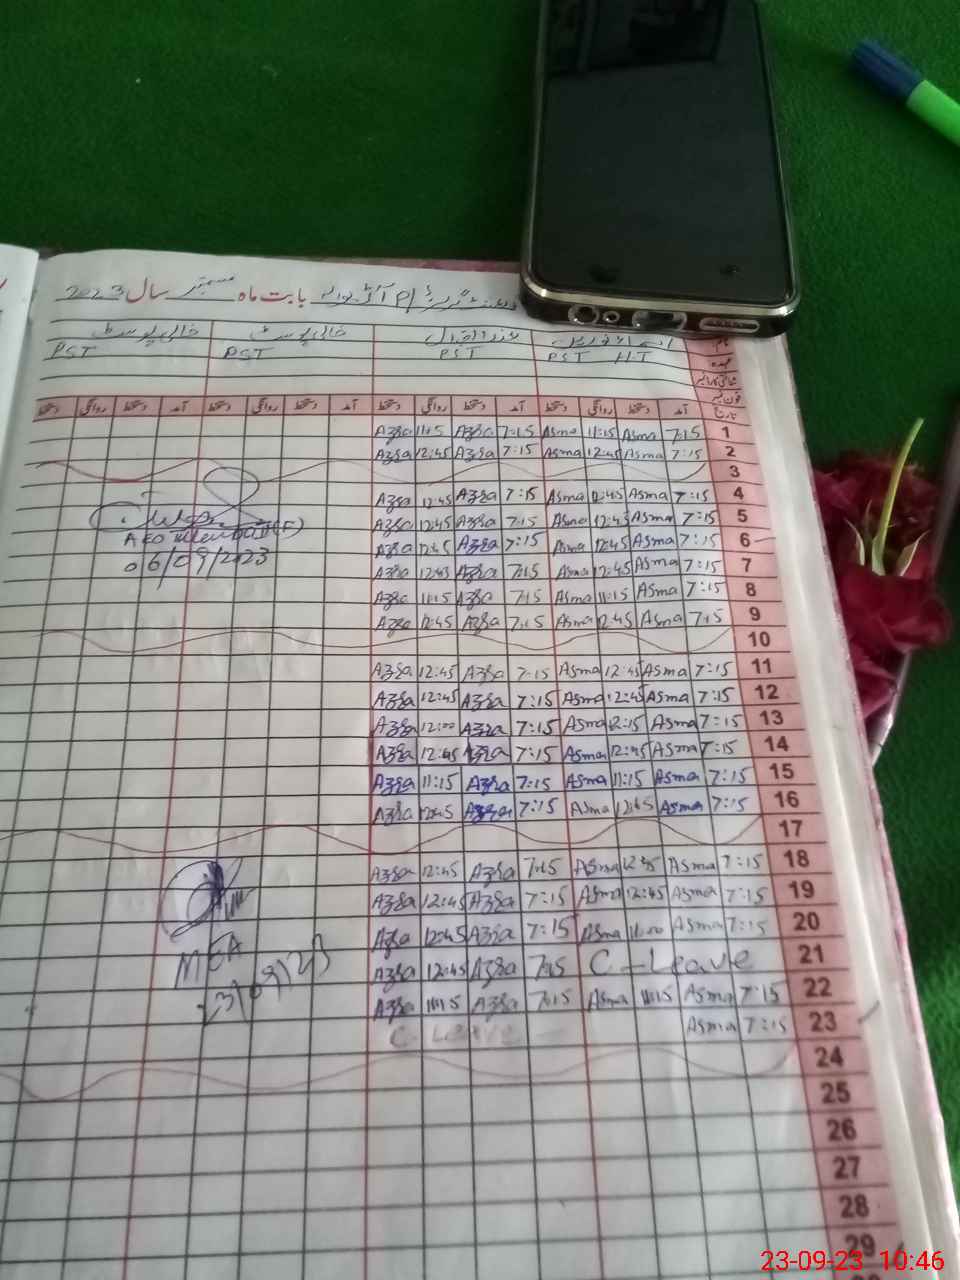 بابت ماہ ستمبر سال 2023
نام
عہدہ PST H.T PST PST PST
خالی پوسٹ خالی پوسٹ
شناختی کارڈ نمبر
فون نمبر
تاریخ آمد دستخط روانگی دستخط آمد دستخط روانگی دستخط آمد دستخط روانگی دستخط آمد دستخط روانگی دستخط
1 7:15 Asma 11:15 Asma 7:15 Azra 11:15 Azra
2 7:15 Asma 12:45 Asma 7:15 Azra 12:45 Azra
3
4 7:15 Asma 12:45 Asma 7:15 Azra 12:45 Azra
5 7:15 Asma 12:45 Asma 7:15 Azra 12:45 Azra
6 7:15 Asma 12:45 Asma 7:15 Azra 12:45 Azra
7 7:15 Asma 12:45 Asma 7:15 Azra 12:45 Azra
8 7:15 Asma 11:15 Asma 7:15 Azra 11:15 Azra
9 7:15 Asma 12:45 Asma 7:15 Azra 12:45 Azra
10
AEO (F)
06/09/2023
11 7:15 Asma 12:45 Asma 7:15 Azra 12:45 Azra
12 7:15 Asma 12:45 Asma 7:15 Azra 12:45 Azra
13 7:15 Asma 12:15 Asma 7:15 Azra 12:00 Azra
14 7:15 Asma 12:45 Asma 7:15 Azra 12:45 Azra
15 7:15 Asma 11:15 Asma 7:15 Azra 11:15 Azra
16 7:15 Asma 12:45 Asma 7:15 Azra 12:45 Azra
17
18 7:15 Asma 12:45 Asma 7:15 Azra 12:45 Azra
19 7:15 Asma 12:45 Asma 7:15 Azra 12:45 Azra
20 7:15 Asma 11:00 Asma 7:15 Azra 12:45 Azra
21 C-Leave 7:15 Azra 12:45 Azra
22 7:15 Asma 11:15 Asma 7:15 Azra 11:15 Azra
23 7:15 Asma C. Leave
MEA
23/09/23
24
25
26
27
28
29
23-09-23 10:46